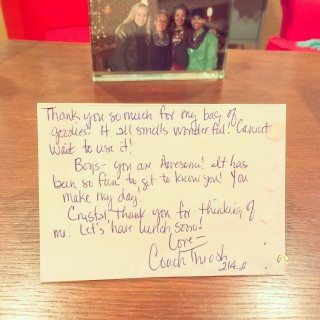 Thank you so much for my bag of
goodies. It all smells wonderful! Cannot
wait to use it!
Boys- you are Awesome! It has
been so fun to get to know you! You
make my day.
Crystal, thank you for thinking of
me. Let's have lunch soon!
Love-
Coach Thrash